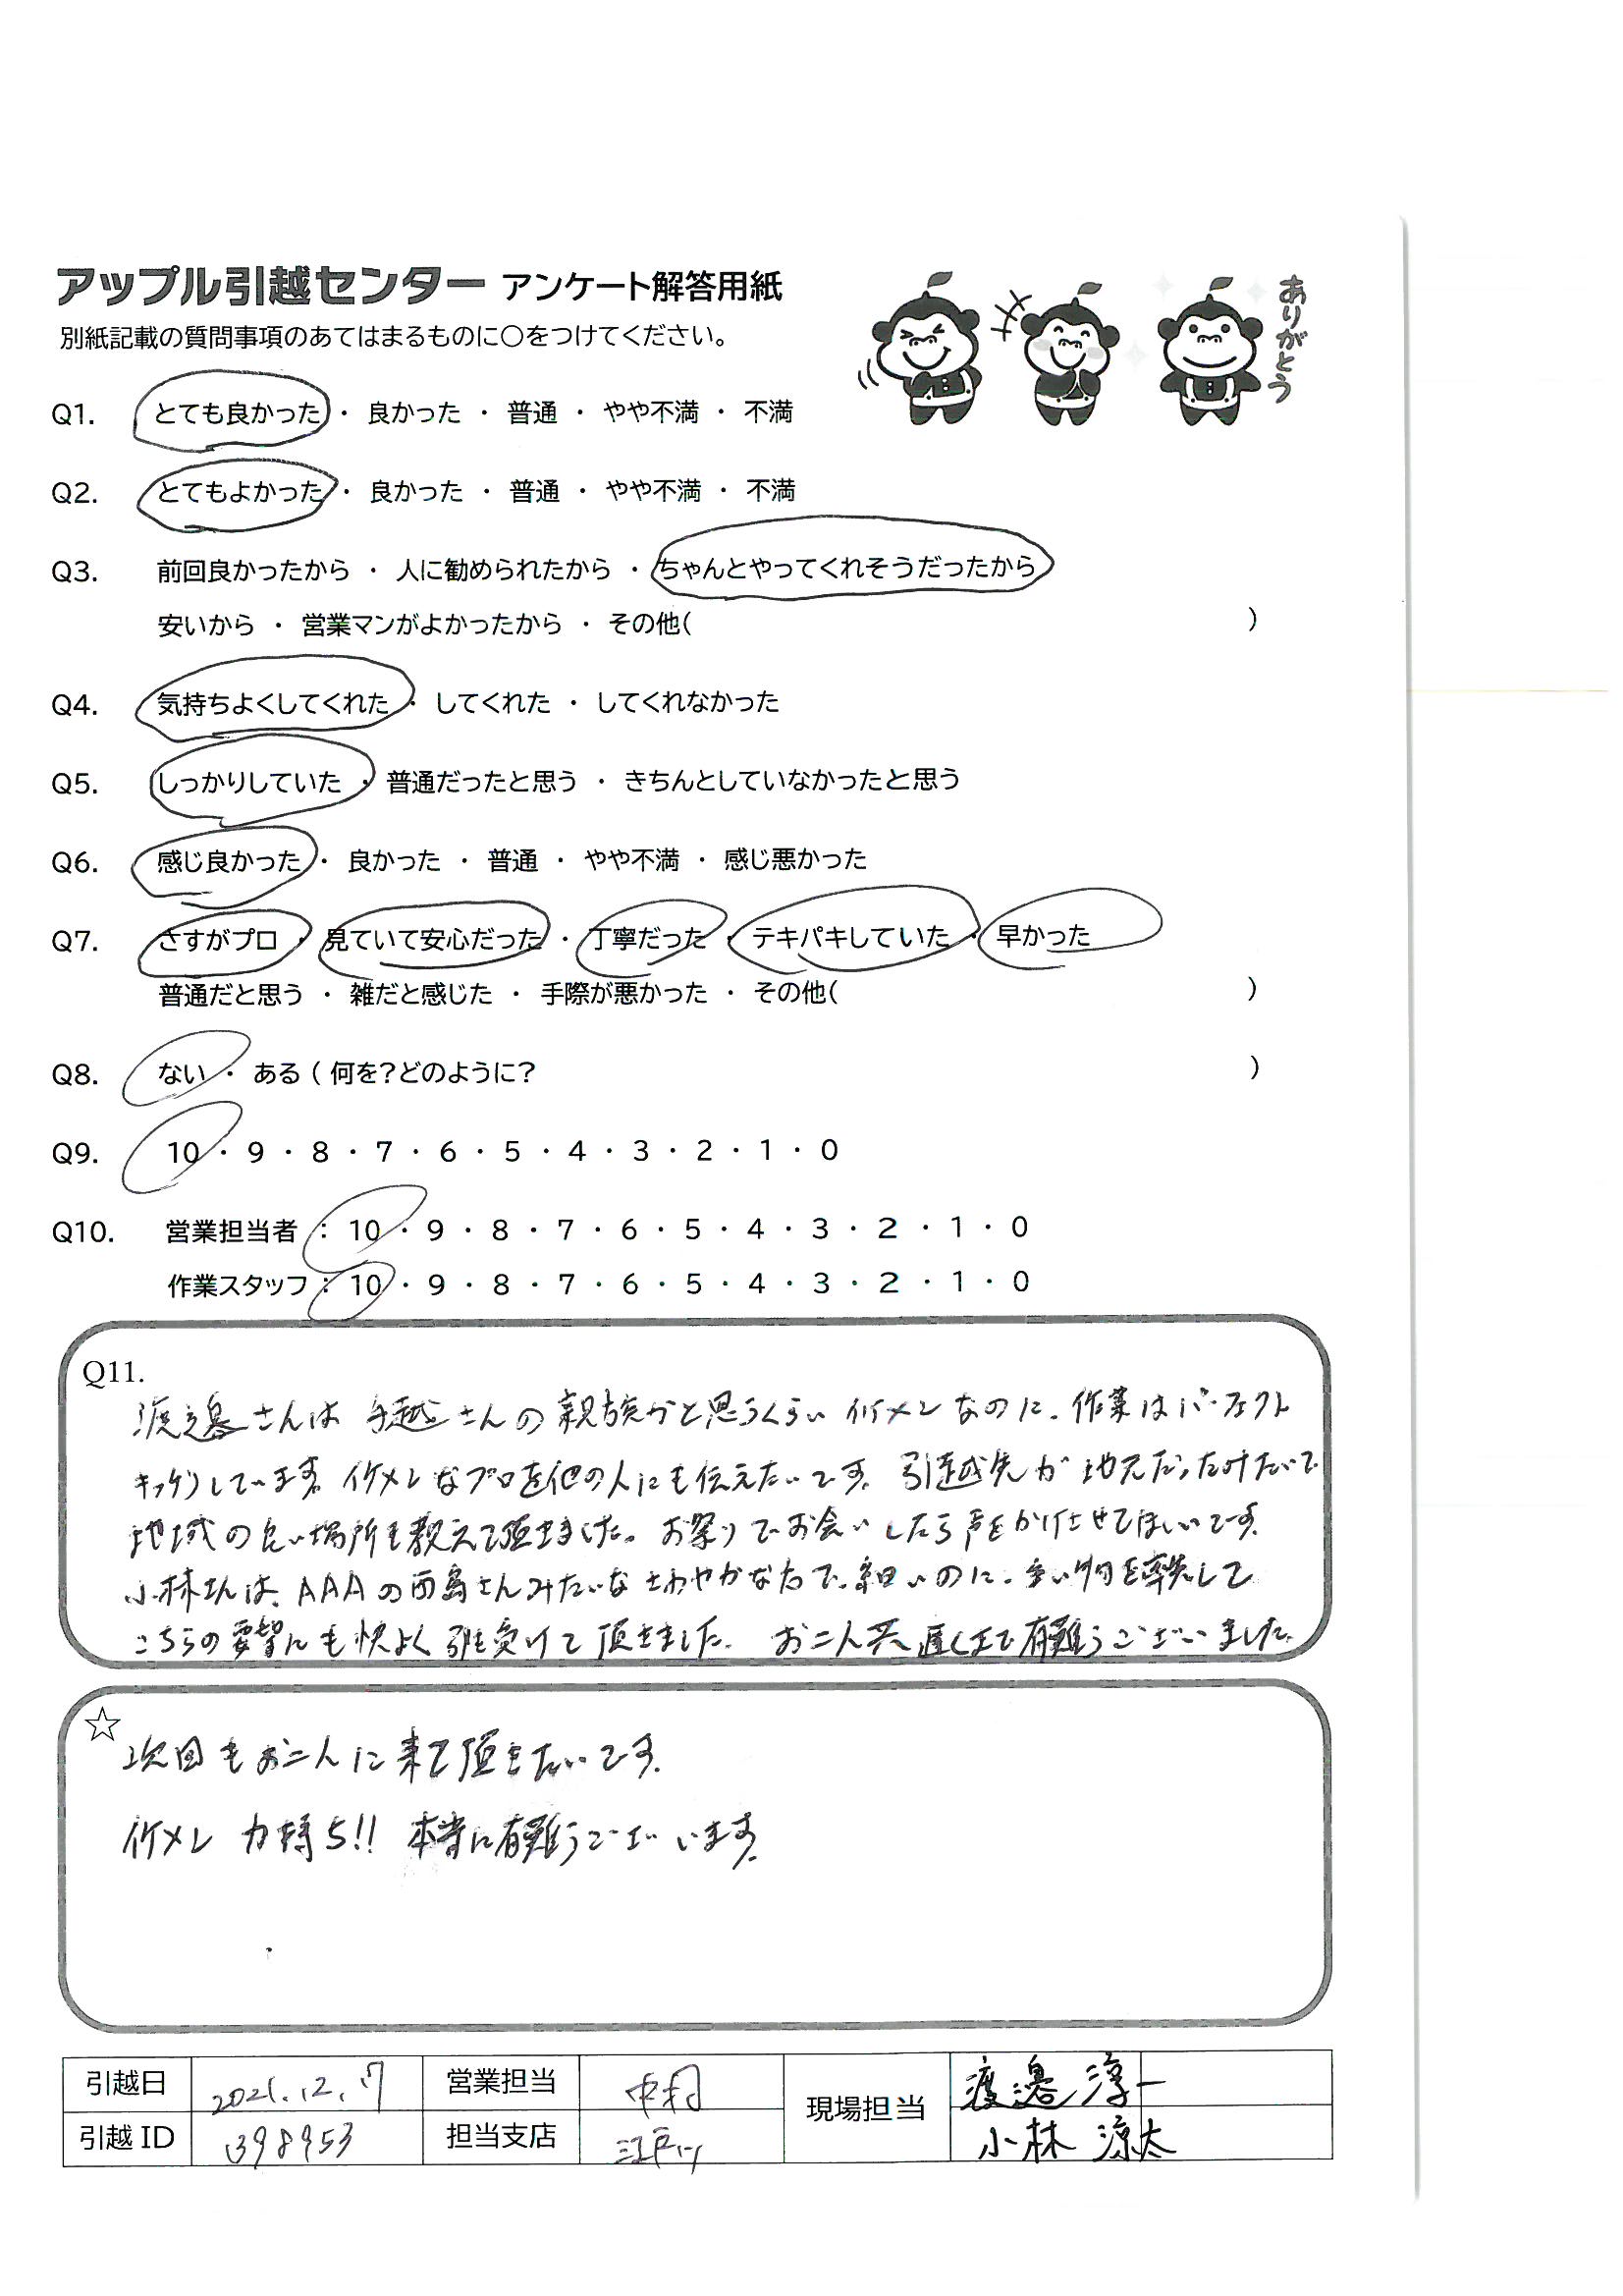 アップル引越センター アンケート解答用紙
別紙記載の質問事項のあてはまるものに○をつけてください。
ありがとう
Q1. とても良かった ・ 良かった ・ 普通 ・ やや不満 ・ 不満
Q2. とてもよかった ・ 良かった ・ 普通 ・ やや不満 ・ 不満
Q3. 前回良かったから ・ 人に勧められたから ・ ちゃんとやってくれそうだったから
安いから ・ 営業マンがよかったから ・ その他( )
Q4. 気持ちよくしてくれた ・ してくれた ・ してくれなかった
Q5. しっかりしていた ・ 普通だったと思う ・ きちんとしていなかったと思う
Q6. 感じ良かった ・ 良かった ・ 普通 ・ やや不満 ・ 感じ悪かった
Q7. さすがプロ ・ 見ていて安心だった ・ 丁寧だった ・ テキパキしていた ・ 早かった
普通だと思う ・ 雑だと感じた ・ 手際が悪かった ・ その他( )
Q8. ない ・ ある ( 何を?どのように? )
Q9. 10 ・ 9 ・ 8 ・ 7 ・ 6 ・ 5 ・ 4 ・ 3 ・ 2 ・ 1 ・ 0
Q10. 営業担当者 : 10 ・ 9 ・ 8 ・ 7 ・ 6 ・ 5 ・ 4 ・ 3 ・ 2 ・ 1 ・ 0
作業スタッフ : 10 ・ 9 ・ 8 ・ 7 ・ 6 ・ 5 ・ 4 ・ 3 ・ 2 ・ 1 ・ 0
Q11.
渡邊さんは手越さんの親族かと思うくらいイケメンなのに、作業はパーフェクト
キッチリしています。イケメンなプロを他の人にも伝えたいです。引越先が地元だったみたいで
地域の良い場所も教えて頂きました。お祭りでお会いしたら声をかけさせてほしいです。
小林さんは、AAAの西島さんみたいなさわやかな方で、細いのに、重い物を率先して
こちらの要望にも快よく引き受けて頂きました。お二人共遅くまで有難うございました。
☆
次回もお二人に来て頂きたいです。
イケメン 力持ち!! 本当に有難うございます。
引越日 2021.12.17 営業担当 中村 現場担当 渡邊 淳一
引越ID 398953 担当支店 江戸川 小林 涼太